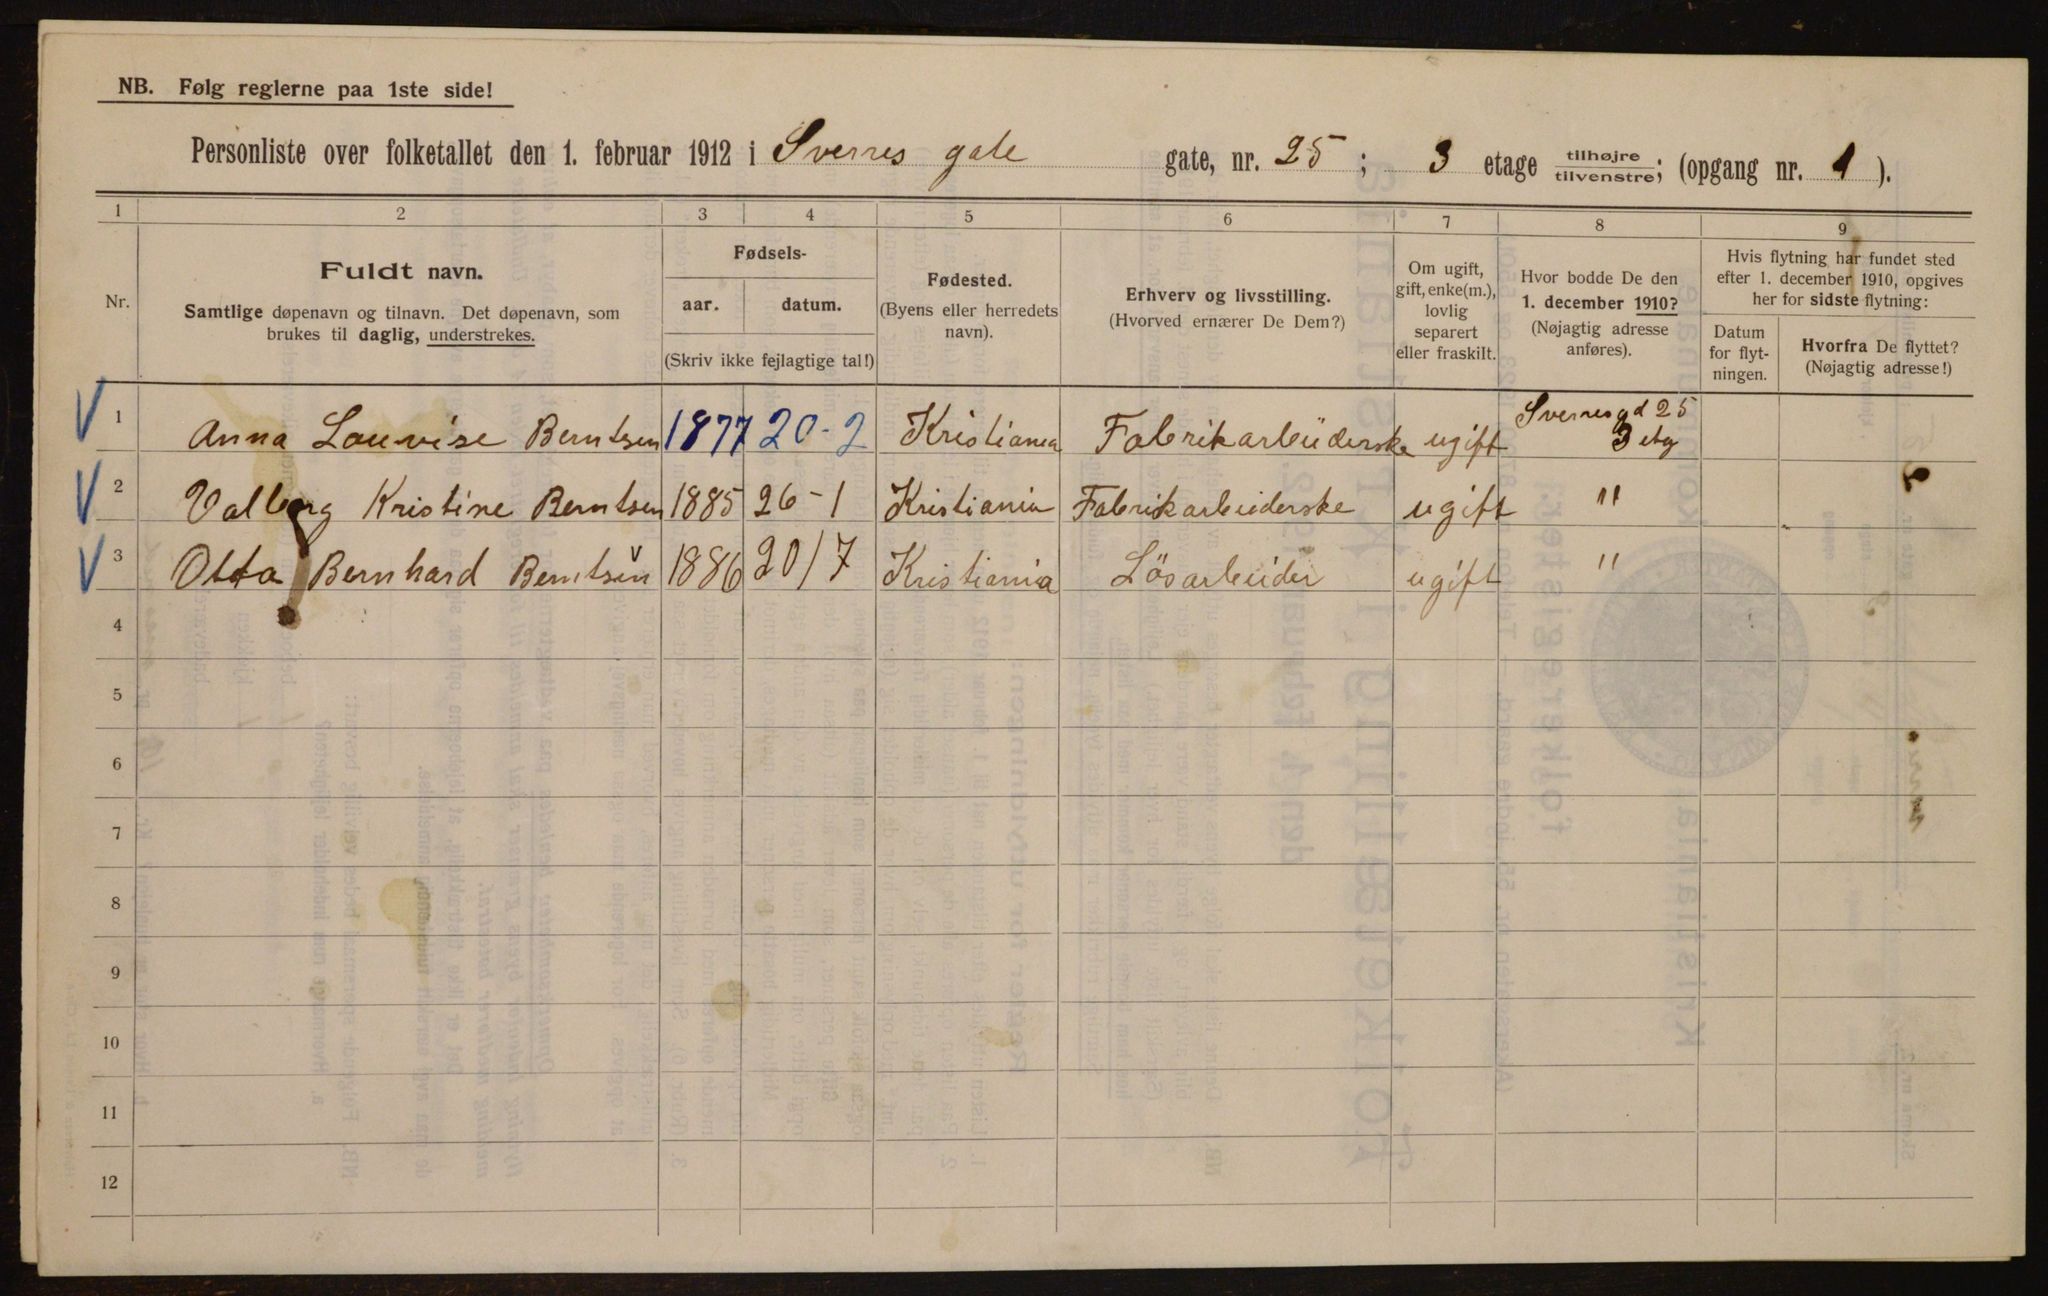 NB. Følg reglerne paa 1ste side!
Personliste over folketallet den 1. februar 1912 i Sverres gate gate, nr. 25; 3 etage tilhøjre/tilvenstre; (opgang nr. 1).
1 2 3 4 5 6 7 8 9
Nr.
Fuldt navn.
Samtlige døpenavn og tilnavn. Det døpenavn, som
brukes til daglig, understrekes.
Fødsels-
aar. datum.
(Skriv ikke fejlagtige tal!)
Fødested.
(Byens eller herredets
navn).
Erhverv og livsstilling.
(Hvorved ernærer De Dem?)
Om ugift,
gift, enke(m.),
lovlig
separert
eller fraskilt.
Hvor bodde De den
1. december 1910?
(Nøjagtig adresse
anføres).
Hvis flytning har fundet sted
efter 1. december 1910, opgives
her for sidste flytning:
Datum
for flyt-
ningen.
Hvorfra De flyttet?
(Nøjagtig adresse!)
1 Anna Louvise Berntsen 1877 20-2 Kristiania Fabrikarbeiderske ugift Sverresgd 25
3 etg
2 Valborg Kristine Berntsen 1885 26-1 Kristiania Fabrikarbeiderske ugift "
3 Otto Bernhard Berntsen 1886 20/7 Kristiania Lösarbeider ugift "
4
5
6
7
8
9
10
11
12